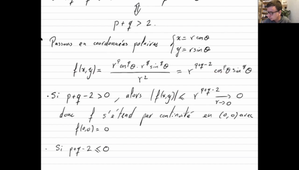 p+q > 2.
Passons en coordonnées polaires { x = r cosθ
y = r sinθ
f(x,y) = r^p cos^pθ . r^q sin^qθ / r² = r^{p+q-2} cos^pθ sin^qθ
. Si p+q-2 > 0 , alors |f(x,y)| ≤ r^{p+q-2} → 0
r→0
donc f s'étend par continuité en (0,0) avec
f(0,0) = 0
. Si p+q-2 ≤ 0